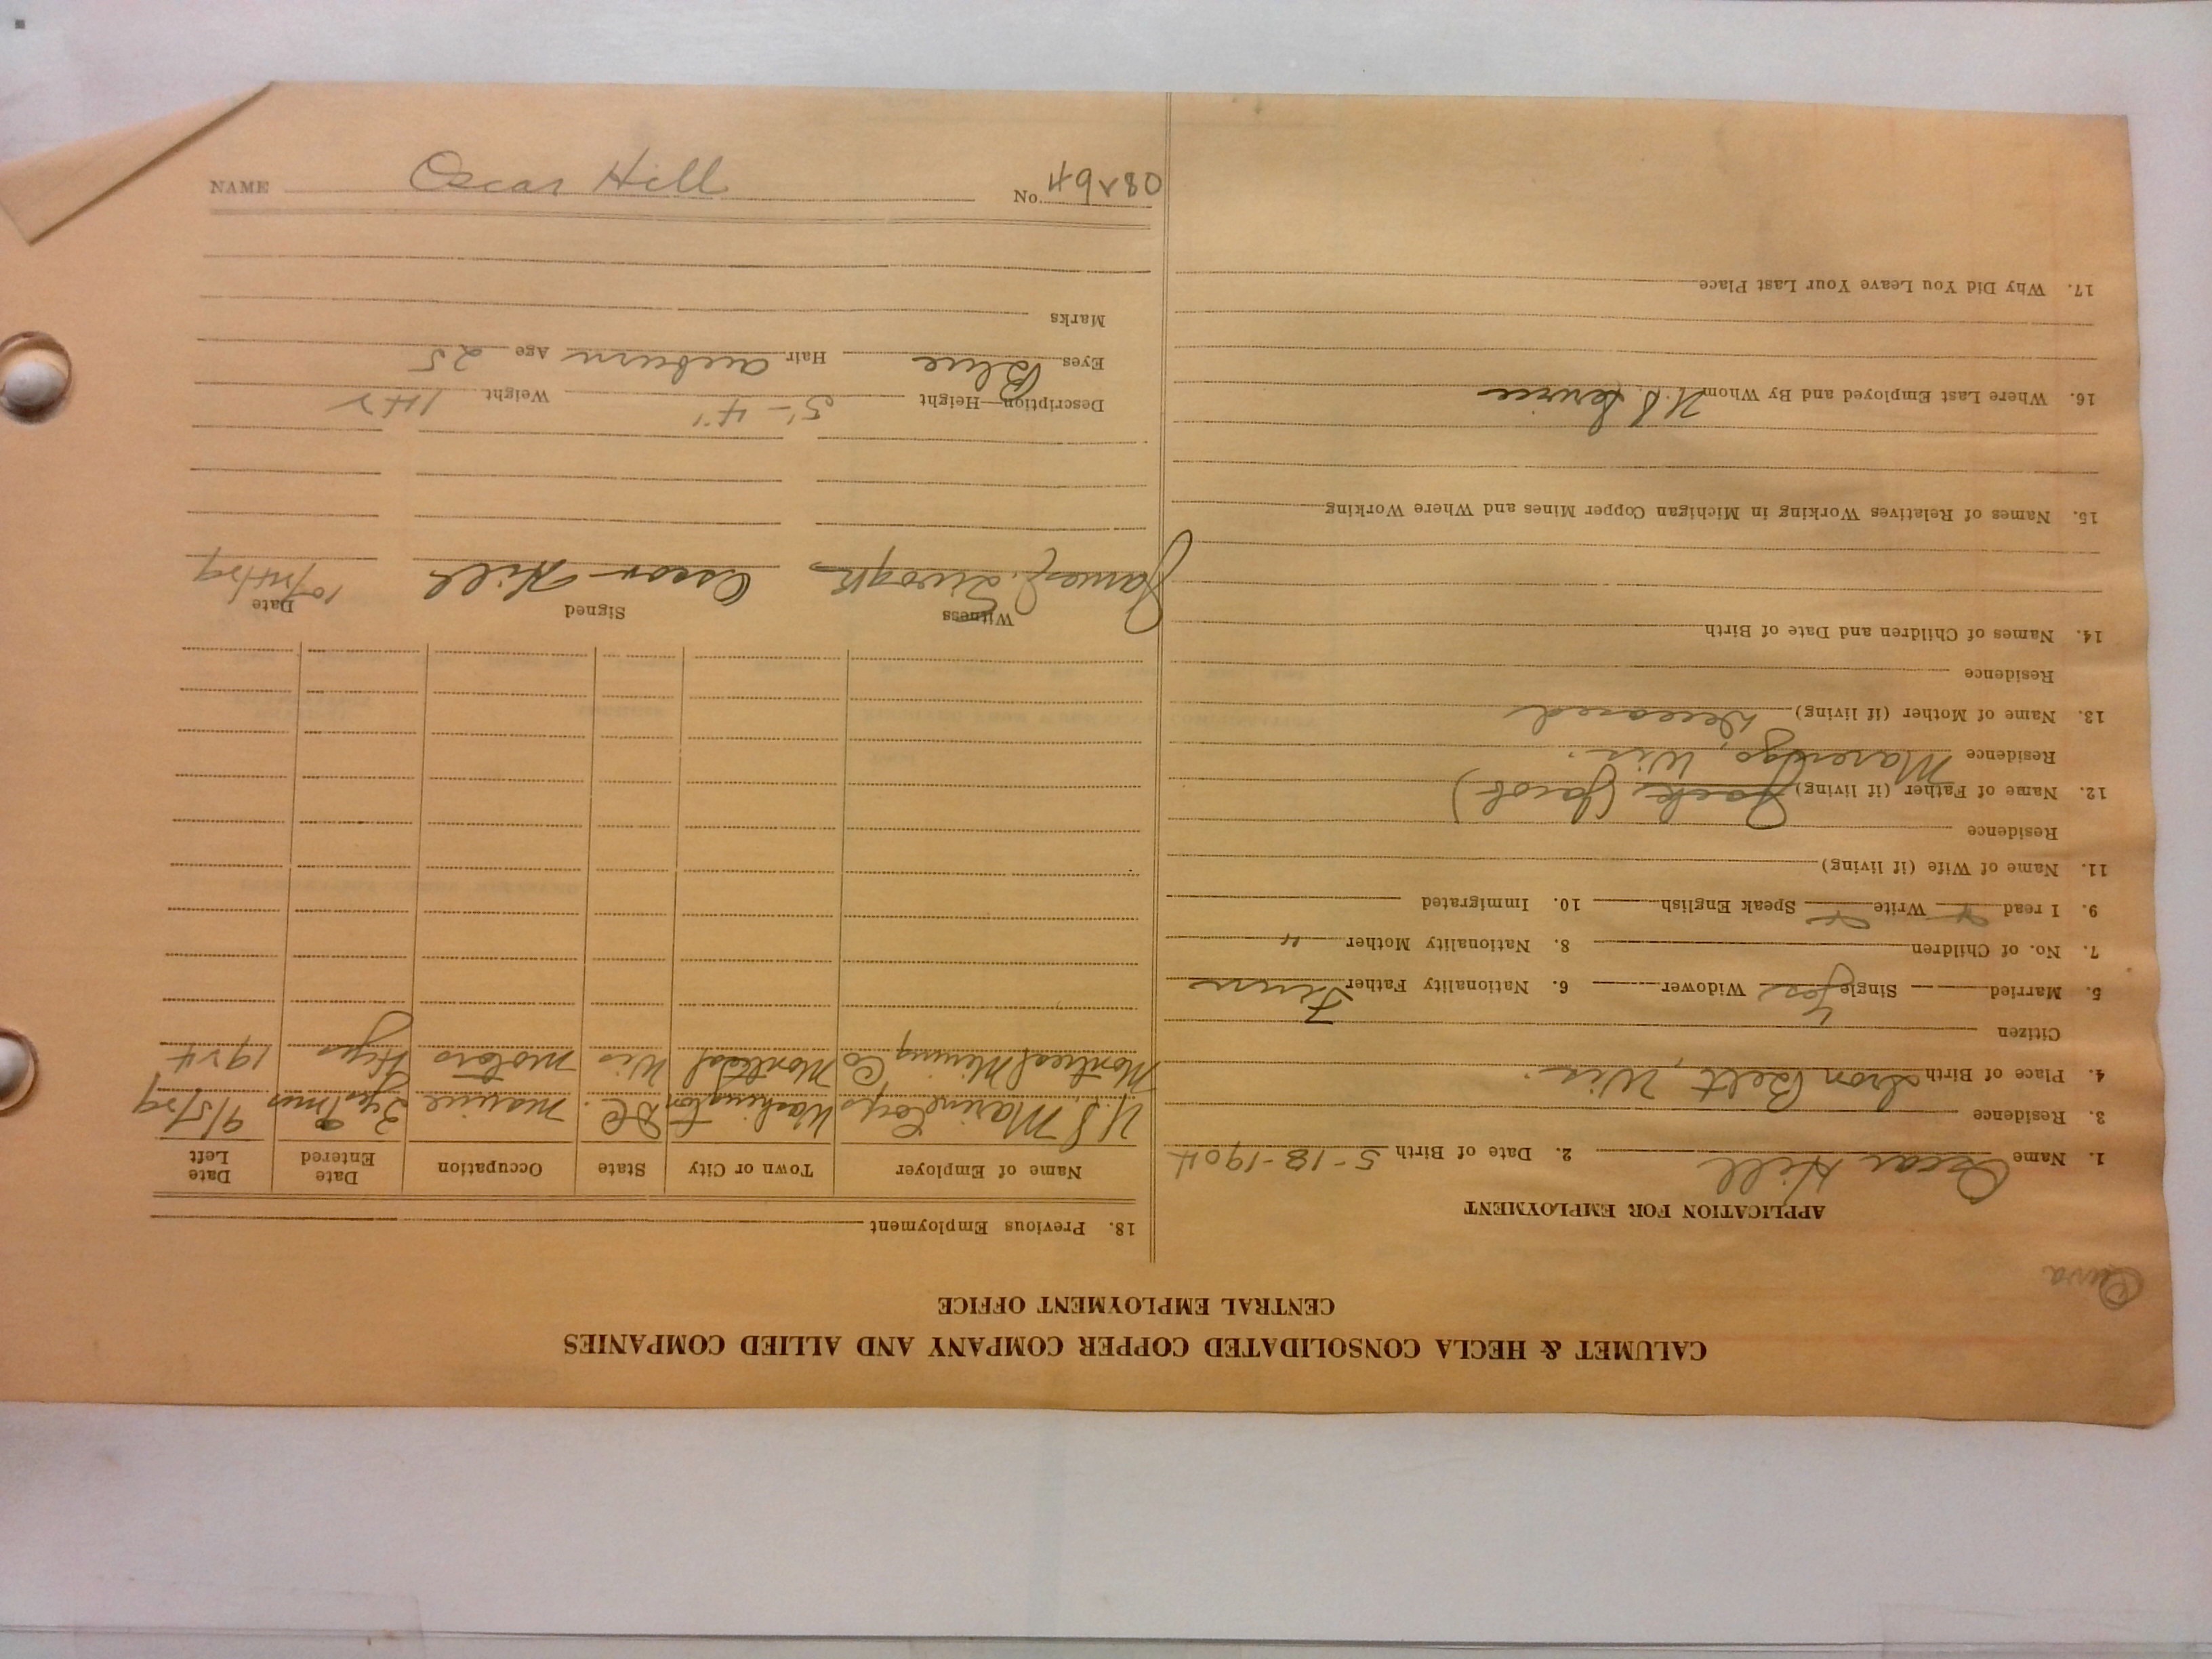 CALUMET & HECLA CONSOLIDATED COPPER COMPANY AND ALLIED COMPANIES
CENTRAL EMPLOYMENT OFFICE
APPLICATION FOR EMPLOYMENT
1. Name Oscar Hill 2. Date of Birth 5-18-1904
3. Residence
4. Place of Birth Iron Belt, Wis.
Citizen
5. Married Single Yes Widower 6. Nationality Father Finn
7. No. of Children 8. Nationality Mother "
9. I read Write Speak English 10. Immigrated
11. Name of Wife (if living)
Residence
12. Name of Father (if living) Jack (Jacob)
Residence Marengo, Wis.
13. Name of Mother (if living) Deceased
Residence
14. Names of Children and Date of Birth
15. Names of Relatives Working in Michigan Copper Mines and Where Working
16. Where Last Employed and By Whom U.S. Service
17. Why Did You Leave Your Last Place
18. Previous Employment
Name of Employer Town or City State Occupation Date Entered Date Left
U.S. Marine Corps Washington D.C. marine 3 yrs 9 mos 9/5/29
Montreal Mining Co Montreal Wis motors 4 yrs 1924
Witness Signed Date
James Oscar Hill 10/24/29
Description—Height 5'-4" Weight 142
Eyes Blue Hair auburn Age 25
Marks
NAME Oscar Hill
No.